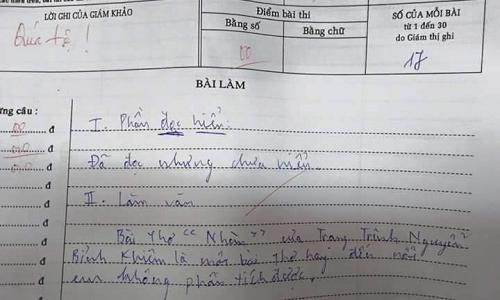 LỜI GHI CỦA GIÁM KHẢO
Điểm bài thi
SỐ CỦA MỖI BÀI
từ 1 đến 30
do Giám thị ghi
Bằng số
Bằng chữ
Quá tệ !
00
17
BÀI LÀM
ừng câu :
00 đ
0,0 đ
0,0 đ
đ
đ
đ
đ
đ
I. Phần đọc hiểu:
Đã đọc nhưng chưa hiểu
II. Làm văn
Bài thơ "Nhàn" của Trạng Trình Nguyễn
Bỉnh Khiêm là một bài thơ hay đến nỗi
em không phân tích được.